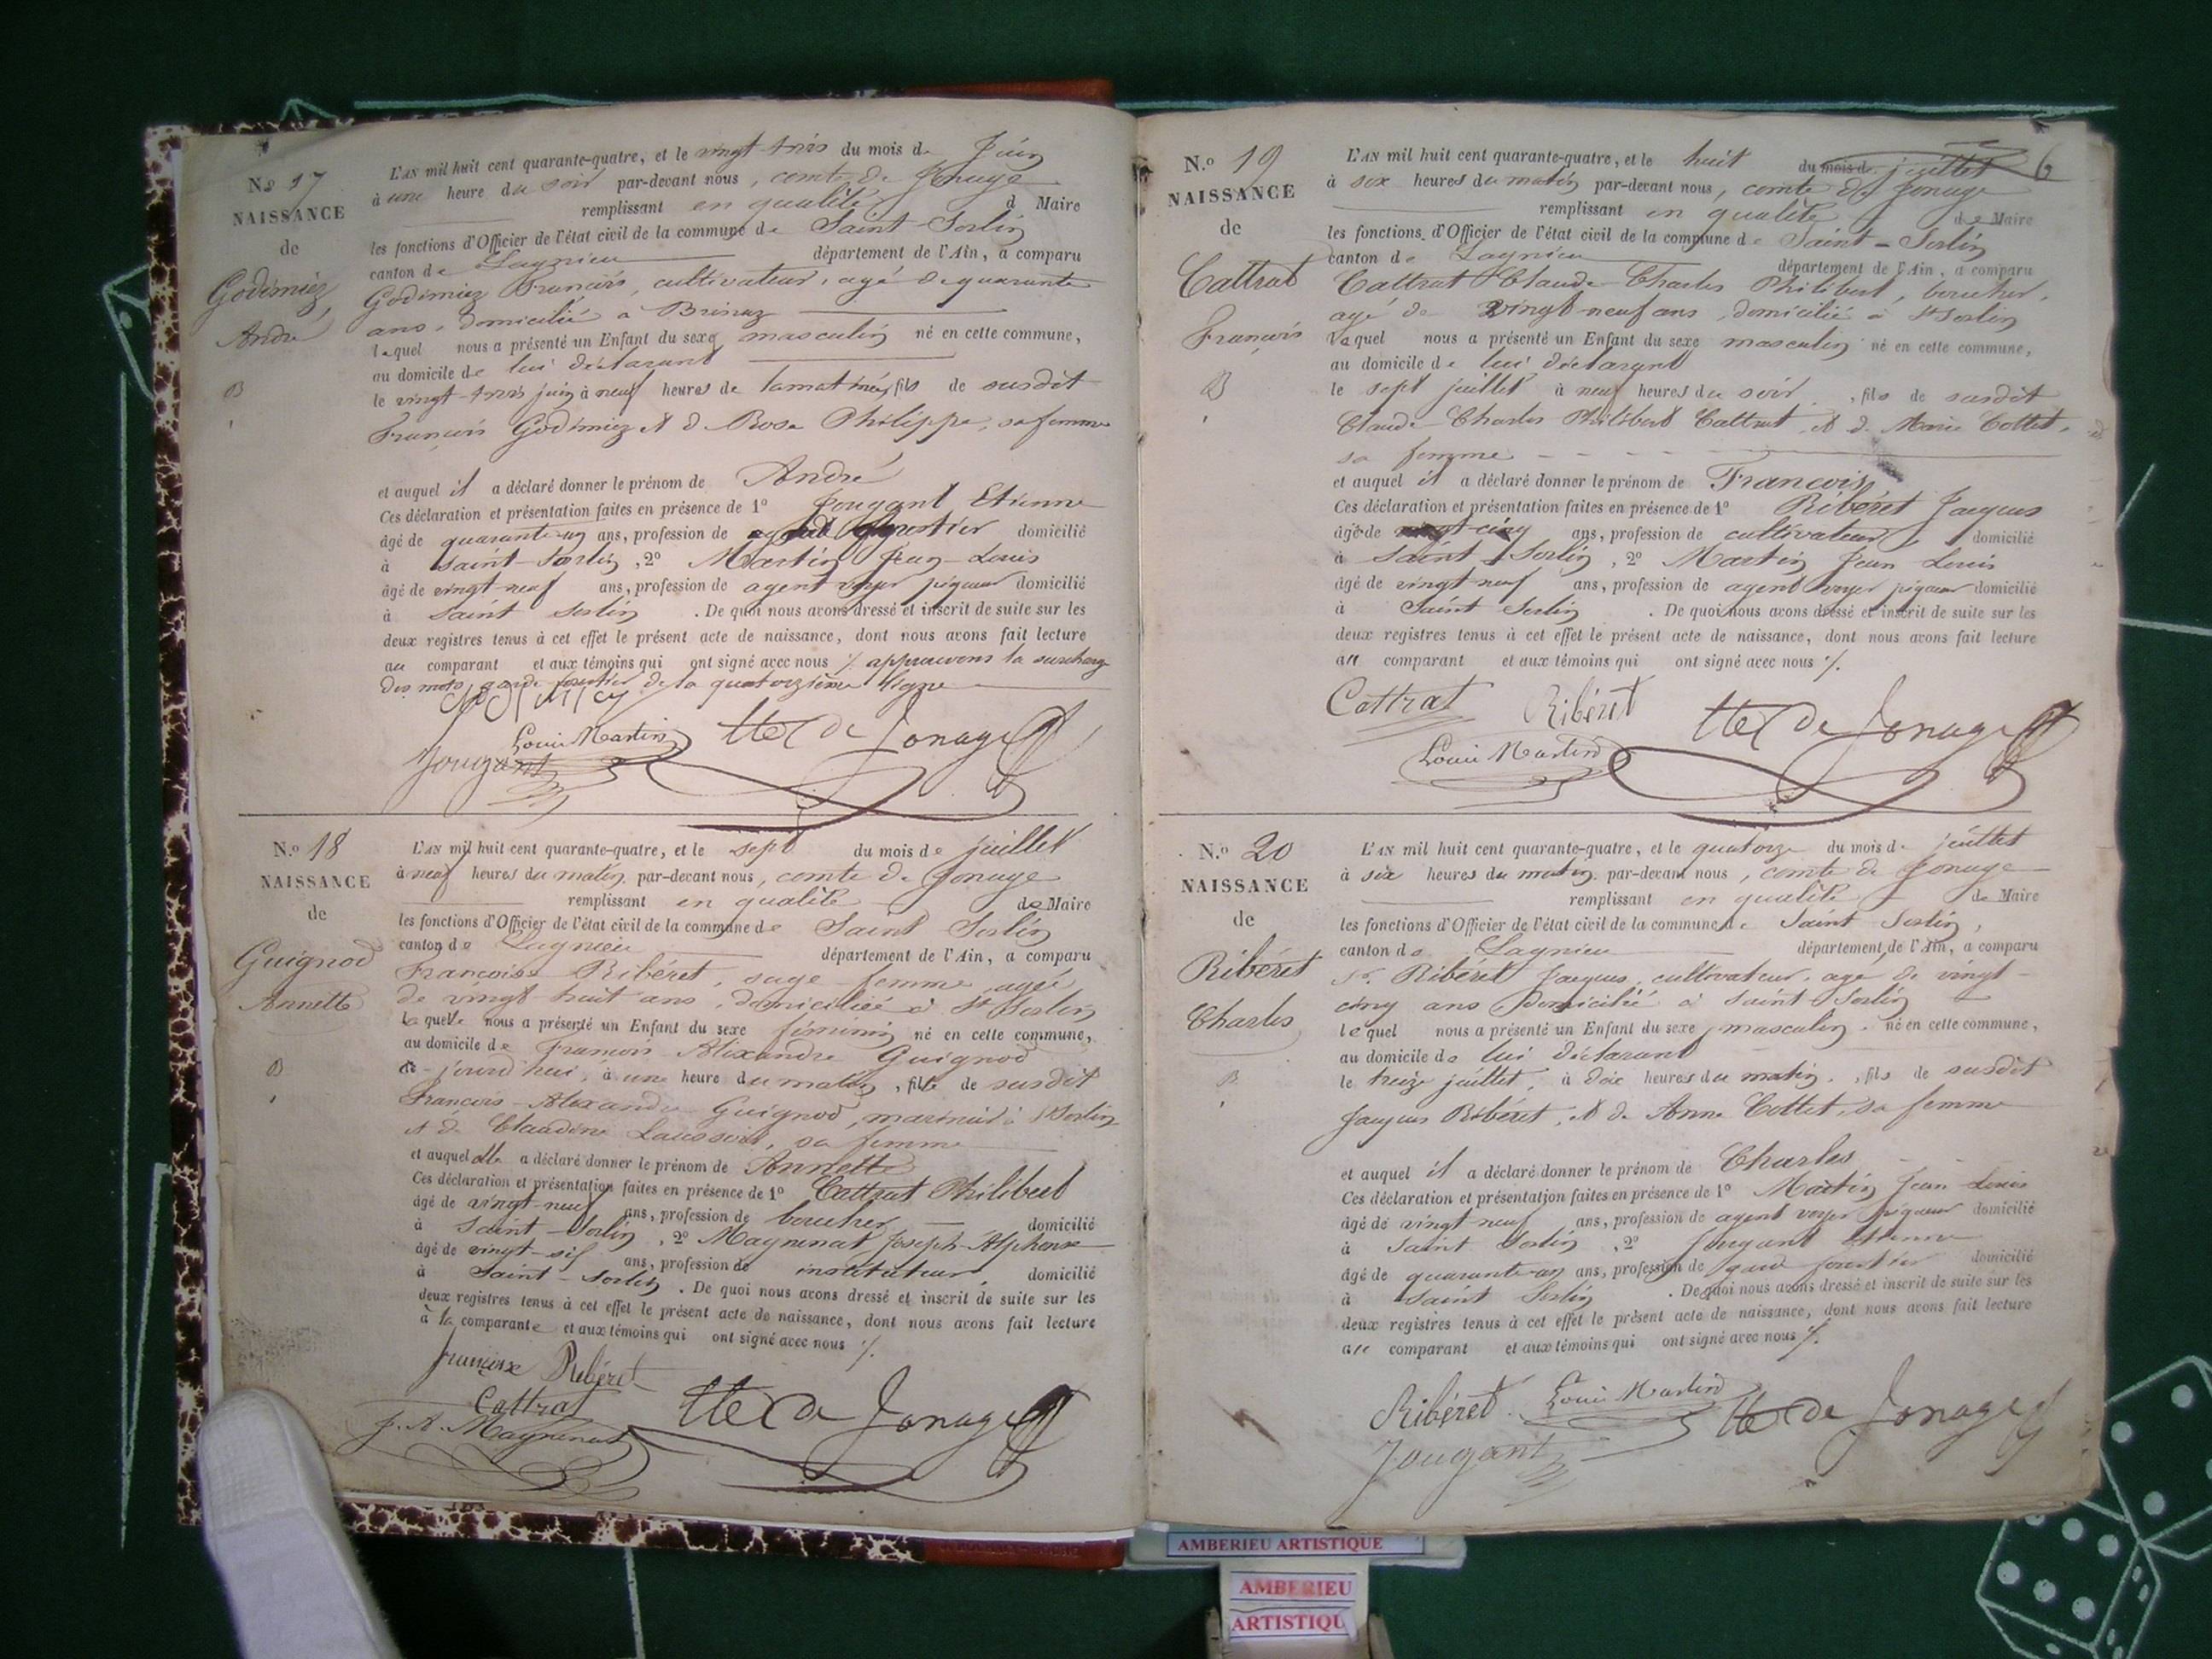 N.º 17
NAISSANCE
de
Godimiez
André
B
L'AN mil huit cent quarante-quatre, et le vingt trois du mois de Juin
à une heure du soir par-devant nous, comte de Jonage
remplissant en qualité d Maire
les fonctions d'Officier de l'état civil de la commune de Saint-Sorlin
canton de Lagnieu département de l'Ain, a comparu
Godimiez François, cultivateur, agé de quarante
ans, domicilié à
lequel nous a présenté un Enfant du sexe masculin né en cette commune,
au domicile de lui déclarant
le vingt-trois juin à neuf heures de la matinée, fils de susdit
François Godimiez et de Rose Philippe, sa femme
et auquel il a déclaré donner le prénom de André
Ces déclaration et présentation faites en présence de 1º Jougant Etienne
âgé de quarante-un ans, profession de domicilié
à Saint-Sorlin, 2º Martin Jean-Louis
âgé de vingt-neuf ans, profession de agent voyer piqueur domicilié
à Saint Sorlin. De quoi nous avons dressé et inscrit de suite sur les
deux registres tenus à cet effet le présent acte de naissance, dont nous avons fait lecture
au comparant et aux témoins qui ont signé avec nous ./. approuvons la surcharge
des mots garde forestier de la quatorzième ligne
Louis Martin
Jougant
Cte De Jonage
N.º 18
NAISSANCE
de
Guignod
Annette
B
L'AN mil huit cent quarante-quatre, et le sept du mois de juillet
à neuf heures du matin par-devant nous, comte de Jonage
remplissant en qualité de Maire
les fonctions d'Officier de l'état civil de la commune de Saint Sorlin
canton de Lagnieu département de l'Ain, a comparu
Françoise Ribéret, sage femme, agée
de vingt-huit ans, domiciliée à St Sorlin
laquelle nous a présenté un Enfant du sexe féminin né en cette commune,
au domicile de François Alixandre Guignod
ce-jourd'hui, à une heure du matin, fille de susdit
François-Alexandre Guignod, marinier à St Sorlin
et de Claudine sa femme
et auquel elle a déclaré donner le prénom de Annette
Ces déclaration et présentation faites en présence de 1º Cattrat Philibert
âgé de vingt-neuf ans, profession de boucher domicilié
à Saint-Sorlin, 2º Magnenat Joseph-Alphonse
âgé de vingt-six ans, profession de instituteur, domicilié
à Saint-Sorlin. De quoi nous avons dressé et inscrit de suite sur les
deux registres tenus à cet effet le présent acte de naissance, dont nous avons fait lecture
à la comparante et aux témoins qui ont signé avec nous ./.
Françoise Ribéret
Cattrat
J. A. Magnenat
Cte De Jonage
6
N.º 19
NAISSANCE
de
Cattrat
François
B
L'AN mil huit cent quarante-quatre, et le huit du mois de juillet
à six heures du matin par-devant nous, comte de Jonage
remplissant en qualité de Maire
les fonctions d'Officier de l'état civil de la commune de Saint-Sorlin
canton de Lagnieu département de l'Ain, a comparu
Cattrat Claude-Charles Philibert, boucher,
agé de vingt-neuf ans, domicilié à St Sorlin
lequel nous a présenté un Enfant du sexe masculin né en cette commune,
au domicile de lui déclarant
le sept juillet à neuf heures du soir, fils de susdit
Claude-Charles Philibert Cattrat, et de Marie Cottet,
sa femme
et auquel il a déclaré donner le prénom de François
Ces déclaration et présentation faites en présence de 1º Ribéret Jacques
âgé de vingt-cinq ans, profession de cultivateur, domicilié
à Saint-Sorlin, 2º Martin Jean Louis
âgé de vingt neuf ans, profession de agent voyer piqueur domicilié
à Saint Sorlin. De quoi nous avons dressé et inscrit de suite sur les
deux registres tenus à cet effet le présent acte de naissance, dont nous avons fait lecture
au comparant et aux témoins qui ont signé avec nous ./.
Cattrat Ribéret
Louis Martin
Cte De Jonage
N.º 20
NAISSANCE
de
Ribéret
Charles
B
L'AN mil huit cent quarante-quatre, et le quatorze du mois de juillet
à six heures du matin par-devant nous, comte de Jonage
remplissant en qualité de Maire
les fonctions d'Officier de l'état civil de la commune de Saint-Sorlin,
canton de Lagnieu département de l'Ain, a comparu
Sr. Ribéret Jacques, cultivateur, agé de vingt-
cinq ans domicilié à Saint-Sorlin
lequel nous a présenté un Enfant du sexe masculin, né en cette commune,
au domicile de lui déclarant
le treize juillet, à dix heures du matin, fils de susdit
Jacques Ribéret, et de Anne Cottet, sa femme
et auquel il a déclaré donner le prénom de Charles
Ces déclaration et présentation faites en présence de 1º Martin Jean-Louis
âgé de vingt neuf ans, profession de agent voyer piqueur domicilié
à Saint Sorlin, 2º Jougant Etienne
âgé de quarante-un ans, profession de garde forestier domicilié
à Saint Sorlin. De quoi nous avons dressé et inscrit de suite sur les
deux registres tenus à cet effet le présent acte de naissance, dont nous avons fait lecture
au comparant et aux témoins qui ont signé avec nous ./.
Ribéret Louis Martin
Jougant
Cte De Jonage
AMBERIEU ARTISTIQUE
AMBERIEU
ARTISTIQU